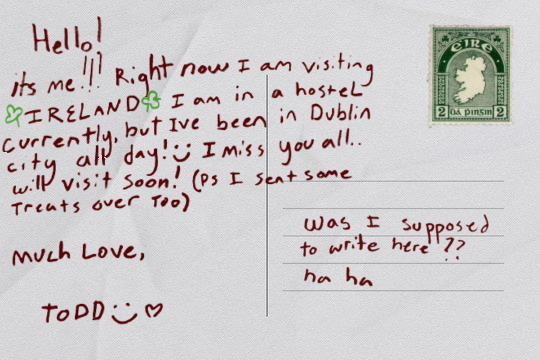 Hello!
its me!!! Right now I am visiting
IRELAND I am in a hostel
currently, but Ive been in Dublin
city all day! I miss you all..
will visit soon! (PS I sent some
Treats over Too)
Much Love,
TODD
ÉIRE
2 2
Dá pinġin
Was I supposed
to write here??
ha ha